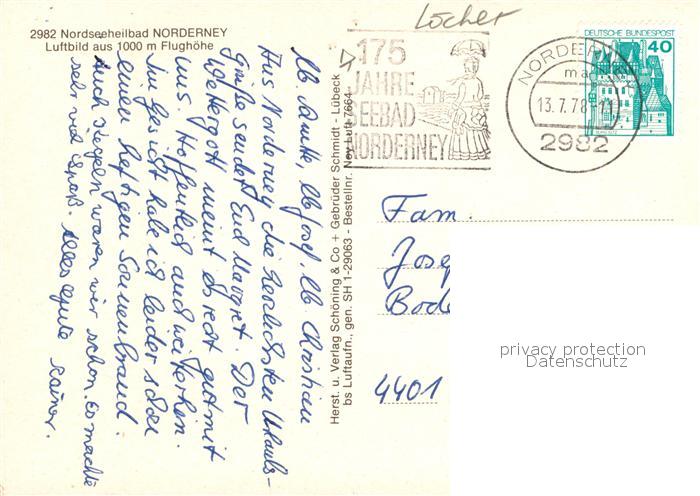 2982 Nordseeheilbad NORDERNEY
Luftbild aus 1000 m Flughöhe
lb. Anette, lb. Josef, lb. Christian
Aus Norderney die herzlichsten Urlaubs-
grüße sendet Euch Margret. Der
Wettergott meint es recht gut mit
uns. Hoffentlich auch weiterhin.
Im Gesicht habe ich leider schon
einen heftigen Sonnenbrand.
Auch Kegeln waren wir schon. Es machte
sehr viel Spaß. Alles Gute
Herst. u. Verlag Schöning & Co + Gebrüder Schmidt - Lübeck
bs Luftaufn., gen. SH 1-29063 - Bestellnr. Ney Luft 7664
Löcher
175
JAHRE
SEEBAD
NORDERNEY
NORDERN
ma
13.7.78-11
2982
DEUTSCHE BUNDESPOST
40
Fam.
Jose
Bode
4401
privacy protection
Datenschutz